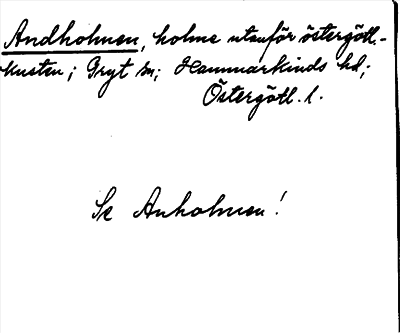 Andholmen, holme utanför östergötl.-
kusten; Gryt sn; Hammarkinds hd;
Östergötl. l.
Se Anholmen!